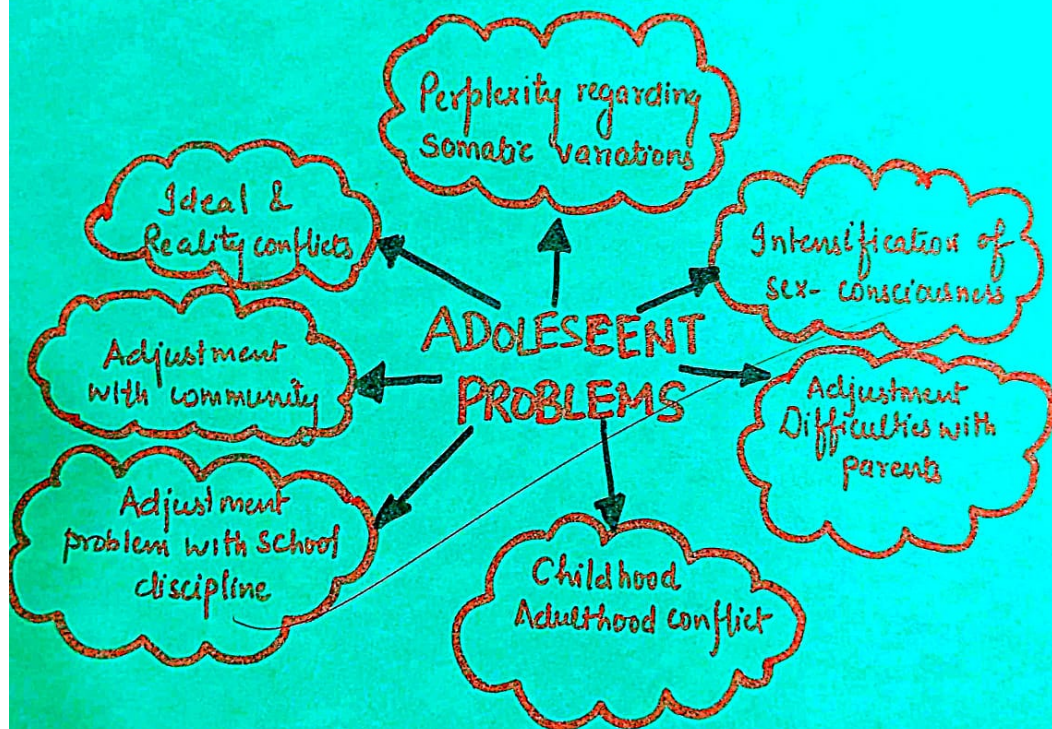 Perplexity regarding
somatic variations
Ideal &
Reality conflicts
Intensification of
sex-consciousness
ADOLESEENT
PROBLEMS
Adjustment
with community
Adjustment
Difficulties with
parents
Adjustment
problem with school
discipline
Childhood
Adulthood conflict